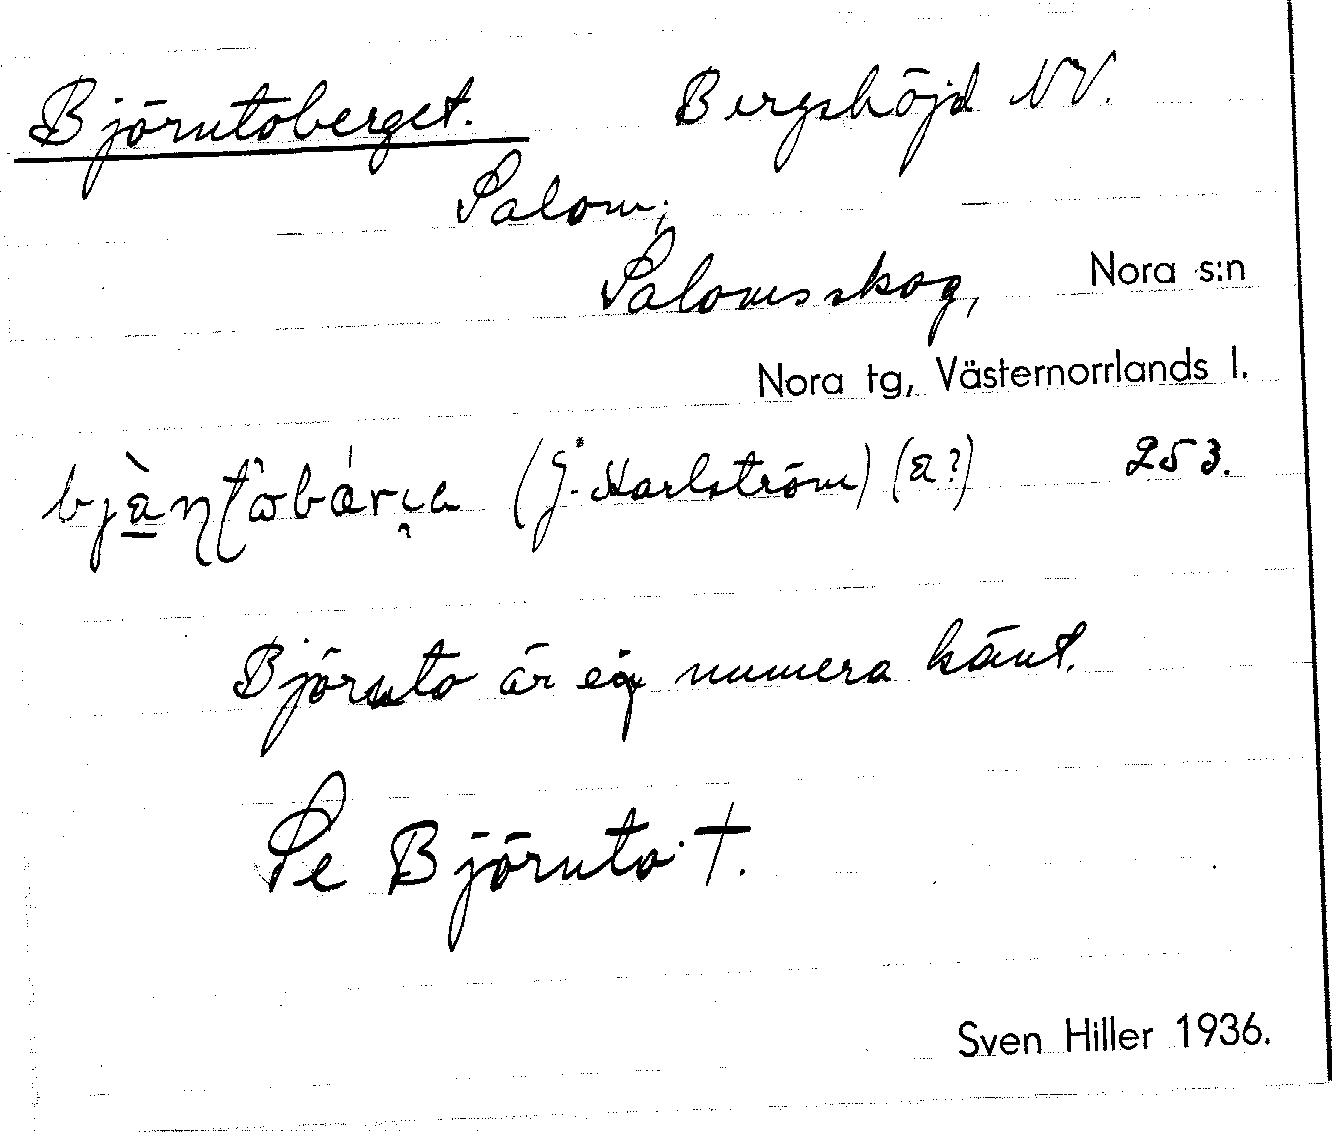 Björntoberget. Bergshöjd NV.
Salom;
Salomsskog, Nora s:n
Nora tg, Västernorrlands l.
(J. Karlström) (a?) 253.
Björnto är ej numera känt.
Se Björnto. †.
Sven Hiller 1936.